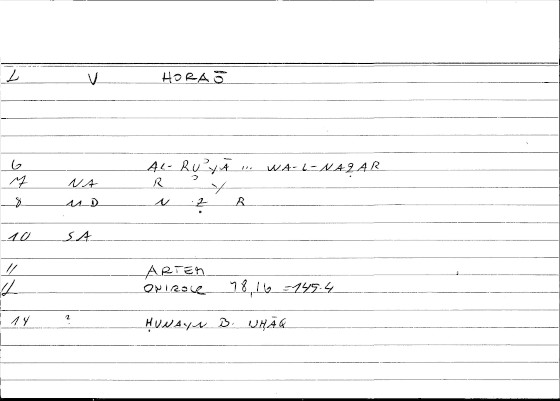 L V HORAŌ
6 AL-RUʾYĀ ... WA-L-NAẒAR
7 NA R ʾ Y
8 MD N Ẓ R
10 SA
11 ARTEM
12 ONIROCR 78,16 = 145.4
14 ? ḤUNAYN B. ISḤĀQ